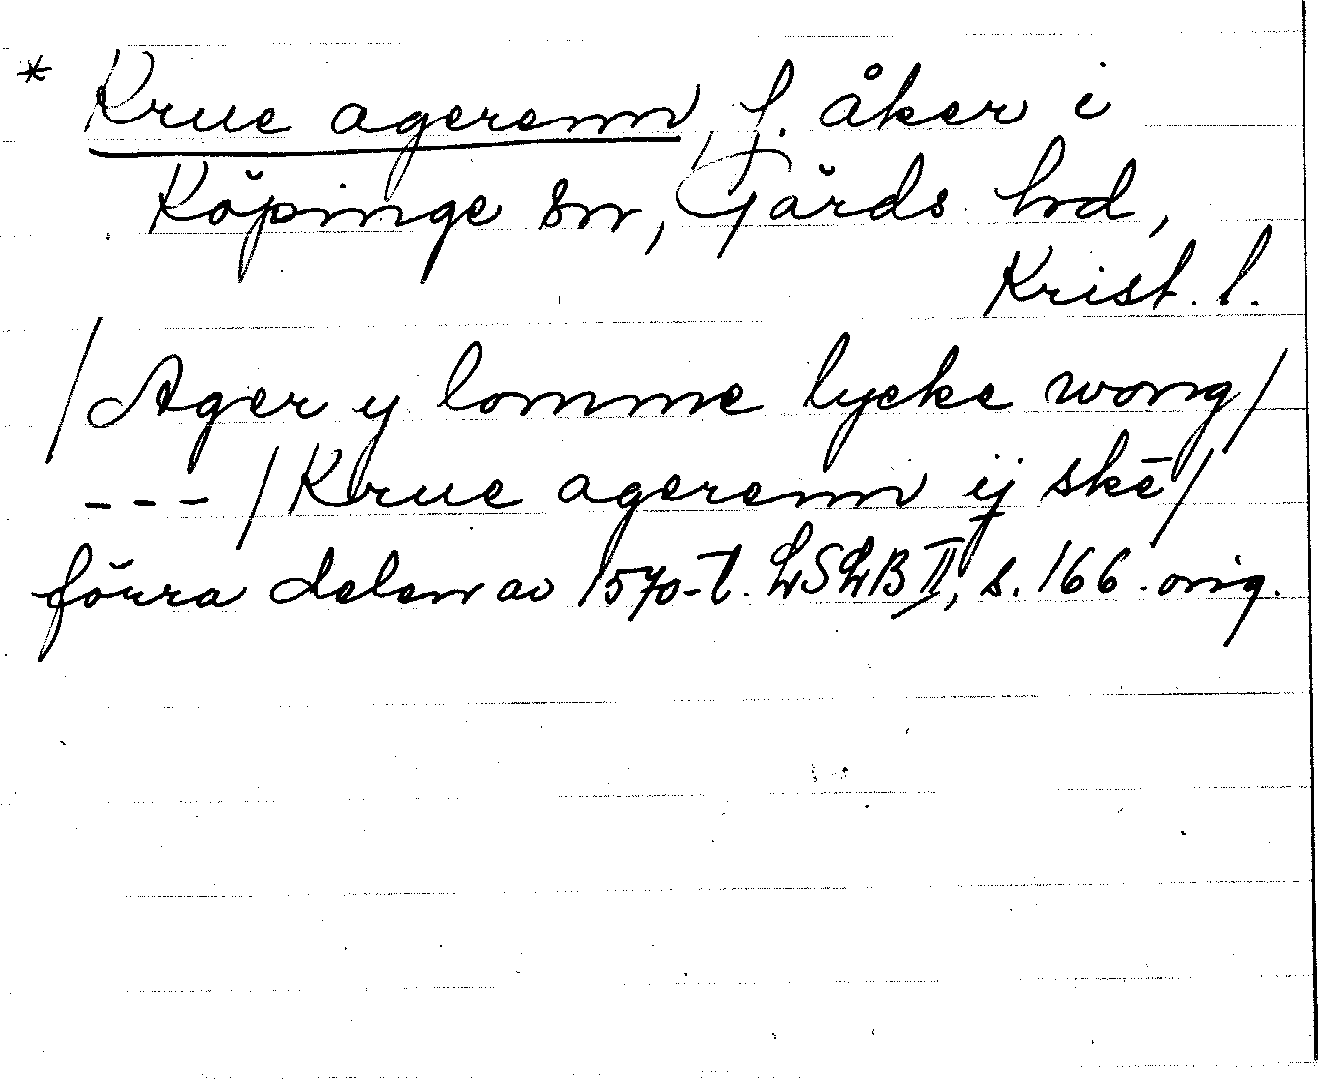 * Krue agerenn, f. åker i
Köpinge sn, Gärds hd,
Krist. l.
/Ager y lomme lycke wong/
--- /Krue agerenn ij skē/
förra delen av 1570-t. LSLB II, s. 166. orig.